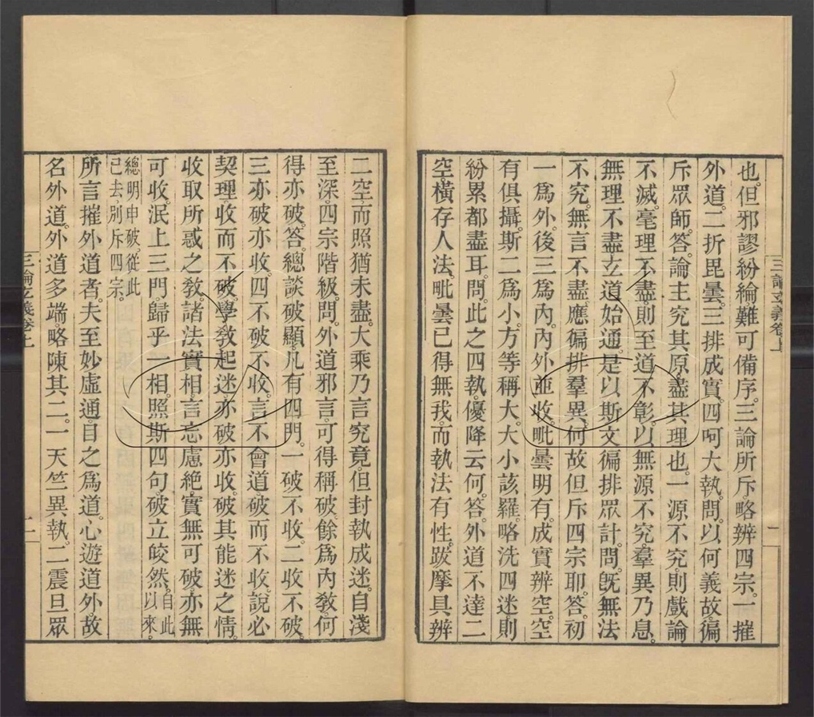 也。但邪謬紛綸難可備序。三論所斥略辨四宗。一摧
外道。二折毘曇。三排成實。四呵大執。問。以何義故徧
斥眾師。答。論主究其原盡其理也。一源不究則戲論
不滅。毫理不盡則至道不彰。以無源不究羣異乃息。
無理不盡玄道始通。是以斯文徧排眾計。問。旣無法
不究。無言不盡應徧排羣異。何故但斥四宗耶。答。初
一為外。後三為內。內外並收。毗曇明有。成實辨空。空
有俱攝。斯二為小。方等稱大。大小該羅。略洗四迷則
紛累都盡耳。問。此之四執。優降云何。答。外道不達二
空。橫存人法。毗曇已得無我。而執法有性。跋摩具辨
三論玄義卷上
一
二空而照猶未盡。大乘乃言究竟。但封執成迷。自淺
至深四宗階級。問。外道邪言可得稱破。餘為內教何
得亦破。答。總談破顯凡有四門。一破不收。二收不破。
三亦破亦收。四不破不收。言不會道破而不收。說必
契理收而不破。學教起迷亦破亦收。破其能迷之情。
收取所惑之教。諸法實相言忘慮絕。實無可破亦無
可收。泯上三門歸乎一相。照斯四句破立皎然。自此以來。
總明申破。從此
已去別斥四宗。
所言摧外道者。夫至妙虛通目之為道。心遊道外。故
名外道。外道多端。略陳其二。一天竺異執。二震旦眾
三論玄義卷上
二